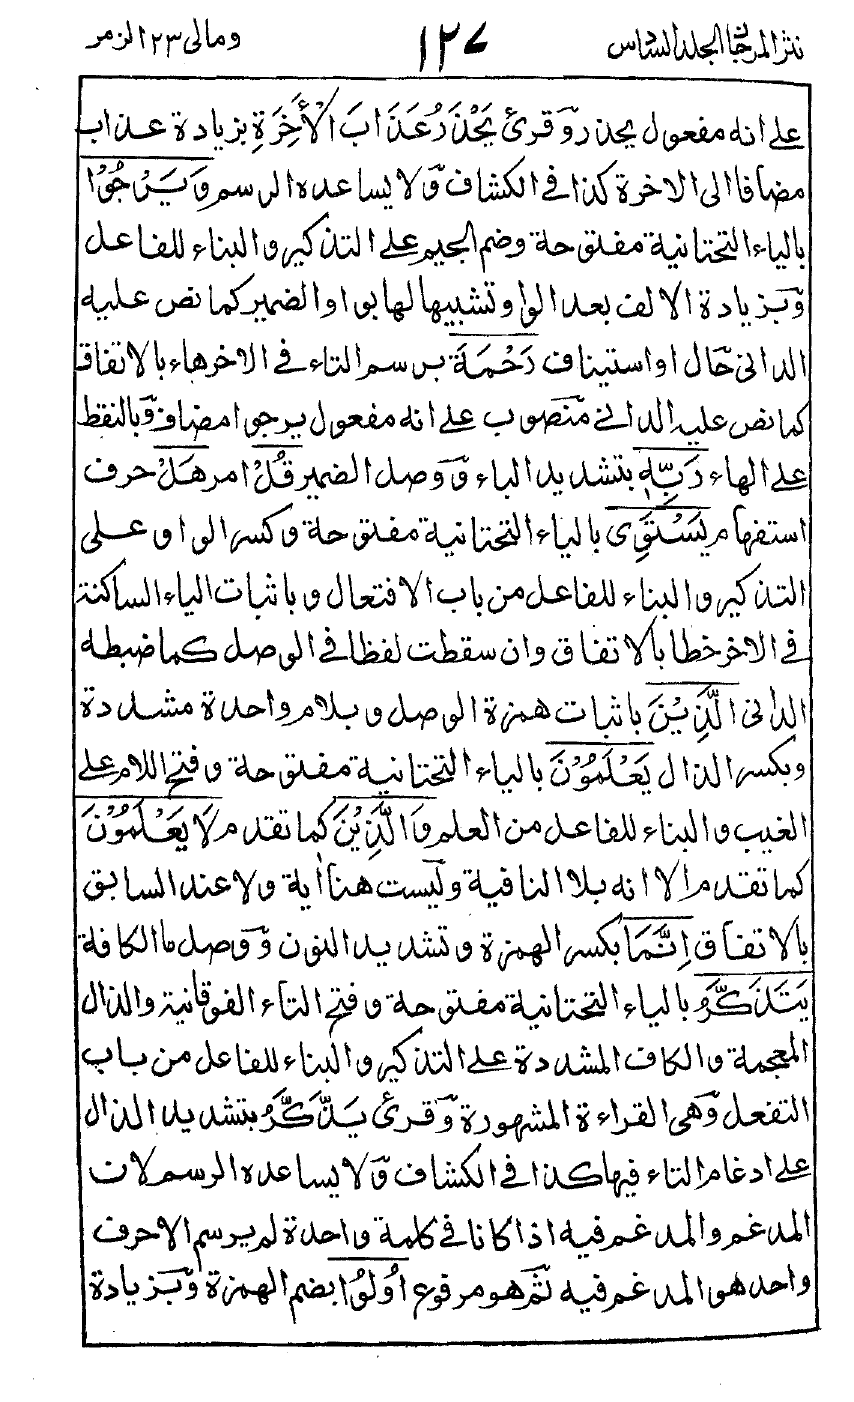 نثر المرجان الجلد السادس ١٢٧ ومالى ٢٣ الزمر
على انه مفعول يحذر وقرئ يَحْذَرُ عَذَابَ الْأٰخِرَةِ بزيادة عذاب
مضافا الى الاخرة كذا في الكشاف ولا يساعده الرسم وَيَرْجُوْا
بالياء التحتانية مفتوحة وضم الجيم على التذكير والبناء للفاعل
وبزيادة الالف بعد الواو تشبيها لها بواو الضمير كما نص عليه
الدانى حال او استيناف رَحْمَةَ برسم التاء في الاخر هاء بالاتفاق
كما نص عليه الدانى منصوب على انه مفعول يرجوا مضاف وبالنقط
على الهاء رَبِّهٖ بتشديد الباء ووصل الضمير قُلْ امر هَلْ حرف
استفهام يَسْتَوِى بالياء التحتانية مفتوحة وكسر الواو على
التذكير والبناء للفاعل من باب الافتعال وباثبات الياء الساكنة
في الاخر خطا بالاتفاق وان سقطت لفظا في الوصل كما ضبطه
الدانى الَّذِيْنَ باثبات همزة الوصل وبلام واحدة مشددة
وبكسر الذال يَعْلَمُوْنَ بالياء التحتانية مفتوحة وفتح اللام على
الغيب والبناء للفاعل من العلم وَالَّذِيْنَ كما تقدم لَا يَعْلَمُوْنَ
كما تقدم الا انه بلا النافية وليست هنا اٰية ولا عند السابق
بالاتفاق اِنَّمَا بكسر الهمزة وتشديد النون ووصل ما الكافة
يَتَذَكَّرُ بالياء التحتانية مفتوحة وفتح التاء الفوقانية والذال
المعجمة والكاف المشددة على التذكير والبناء للفاعل من باب
التفعل وهى القراءة المشهورة وقرئ يَذَّكَّرُ بتشديد الذال
على ادغام التاء فيها كذا في الكشاف ولا يساعده الرسم لان
المدغم والمدغم فيه اذا كانا في كلمة واحدة لم يرسم الا حرف
واحد هو المدغم فيه ثم هو مرفوع اُولُوْا بضم الهمزة وبزيادة